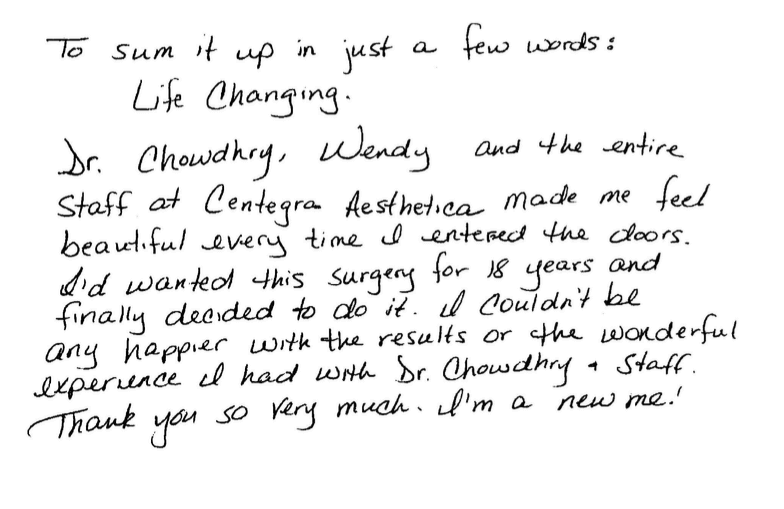 To sum it up in just a few words:
Life Changing.
Dr. Chowdhry, Wendy and the entire
Staff at Centegra Aesthetica made me feel
beautiful every time I entered the doors.
I'd wanted this surgery for 18 years and
finally decided to do it. I couldn't be
any happier with the results or the wonderful
experience I had with Dr. Chowdhry & Staff.
Thank you so very much. I'm a new me!